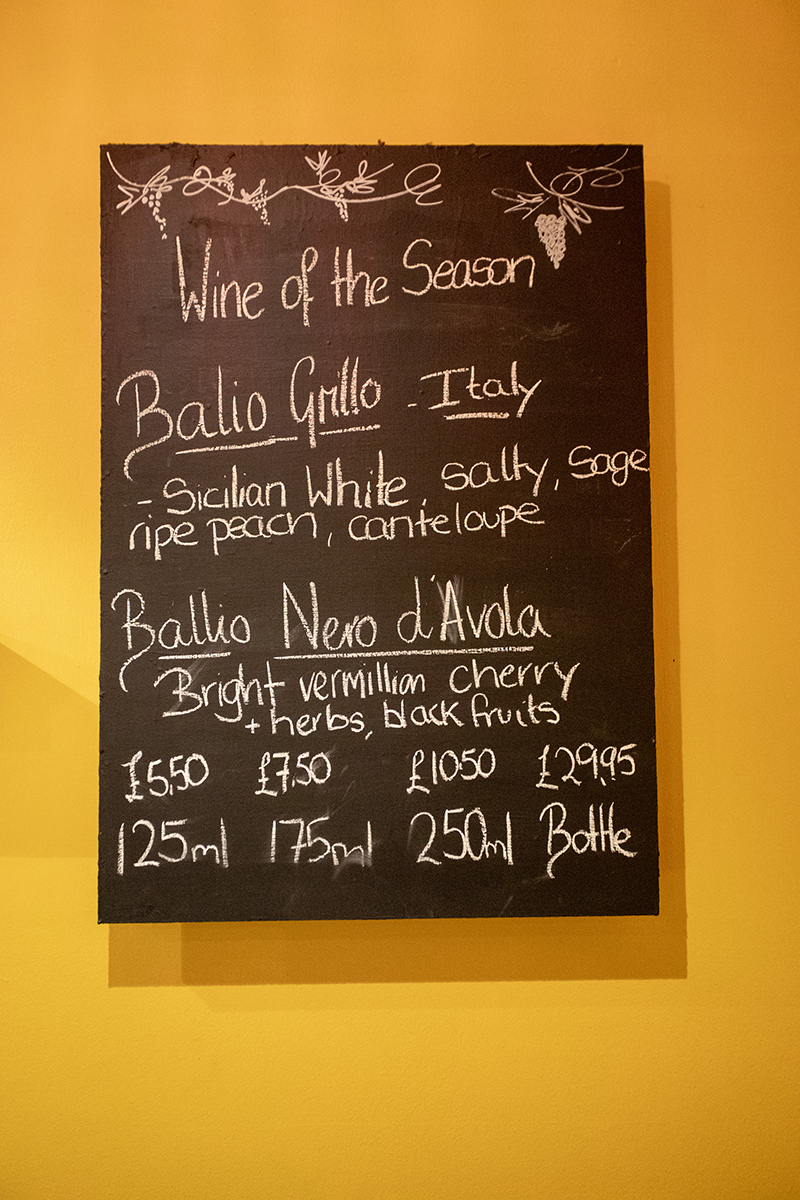 Wine of the Season
Balio Grillo - Italy
- Sicilian White, salty, sage
ripe peach, canteloupe
Ballio Nero d'Avola
Bright vermillian cherry
+ herbs, black fruits
£5.50 £7.50 £1050 £29.95
125ml 175ml 250ml Bottle